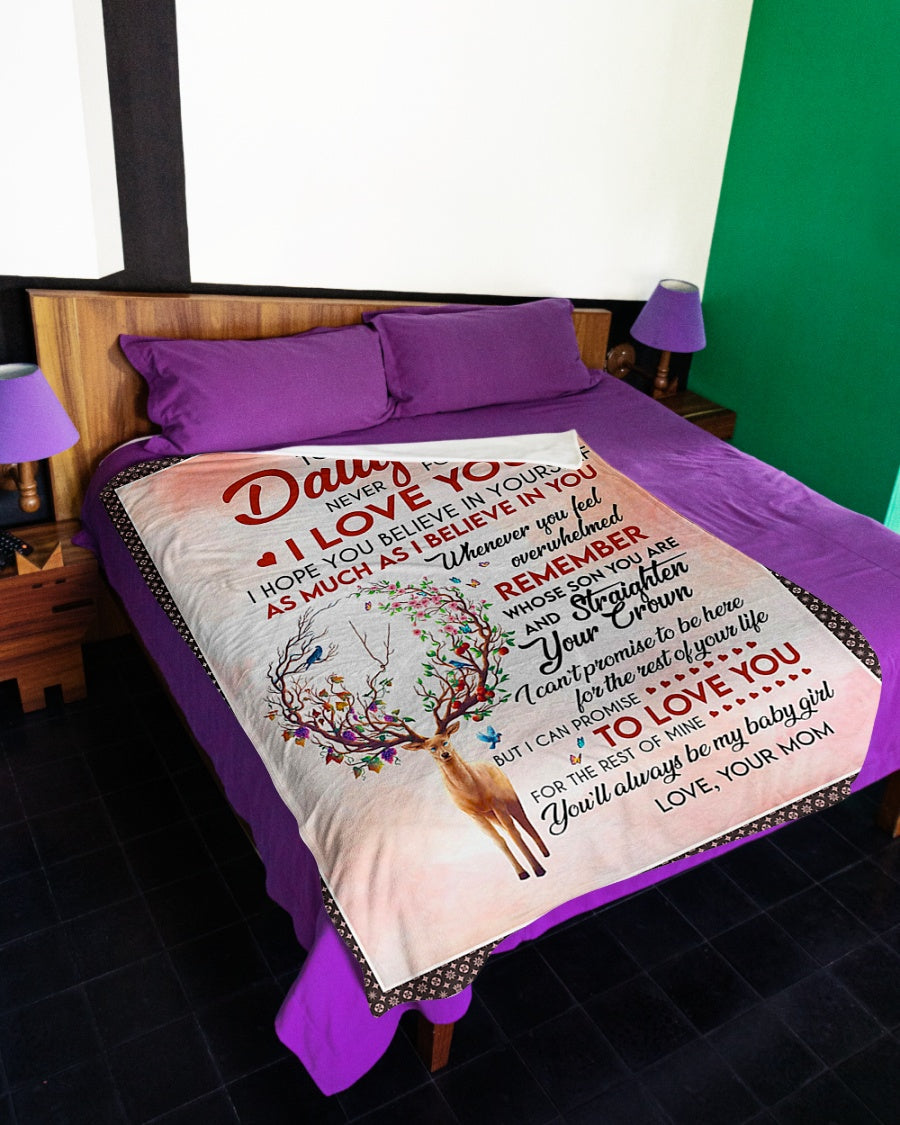 NEVER
I LOVE YOU
I HOPE YOU BELIEVE IN YOURSELF
AS MUCH AS I BELIEVE IN YOU
Whenever you feel
overwhelmed
REMEMBER
WHOSE SON YOU ARE
AND Straighten
Your Crown
I can't promise to be here
for the rest of your life
BUT I CAN PROMISE
TO LOVE YOU
FOR THE REST OF MINE
You'll always be my baby girl
LOVE, YOUR MOM